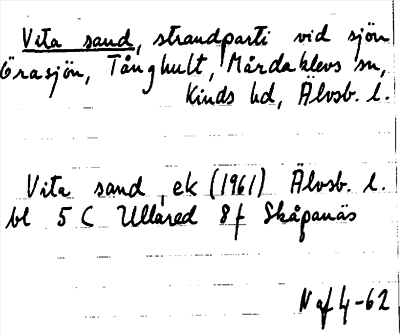 Vita sand, strandparti vid sjön
Örasjön, Tånghult, Mårdaklevs sn,
Kinds hd, Älvsb. l.
Vita sand, ek (1961) Älvsb. l.
bl 5 C Ullared 8 f Skåpanäs
N gf 4-62